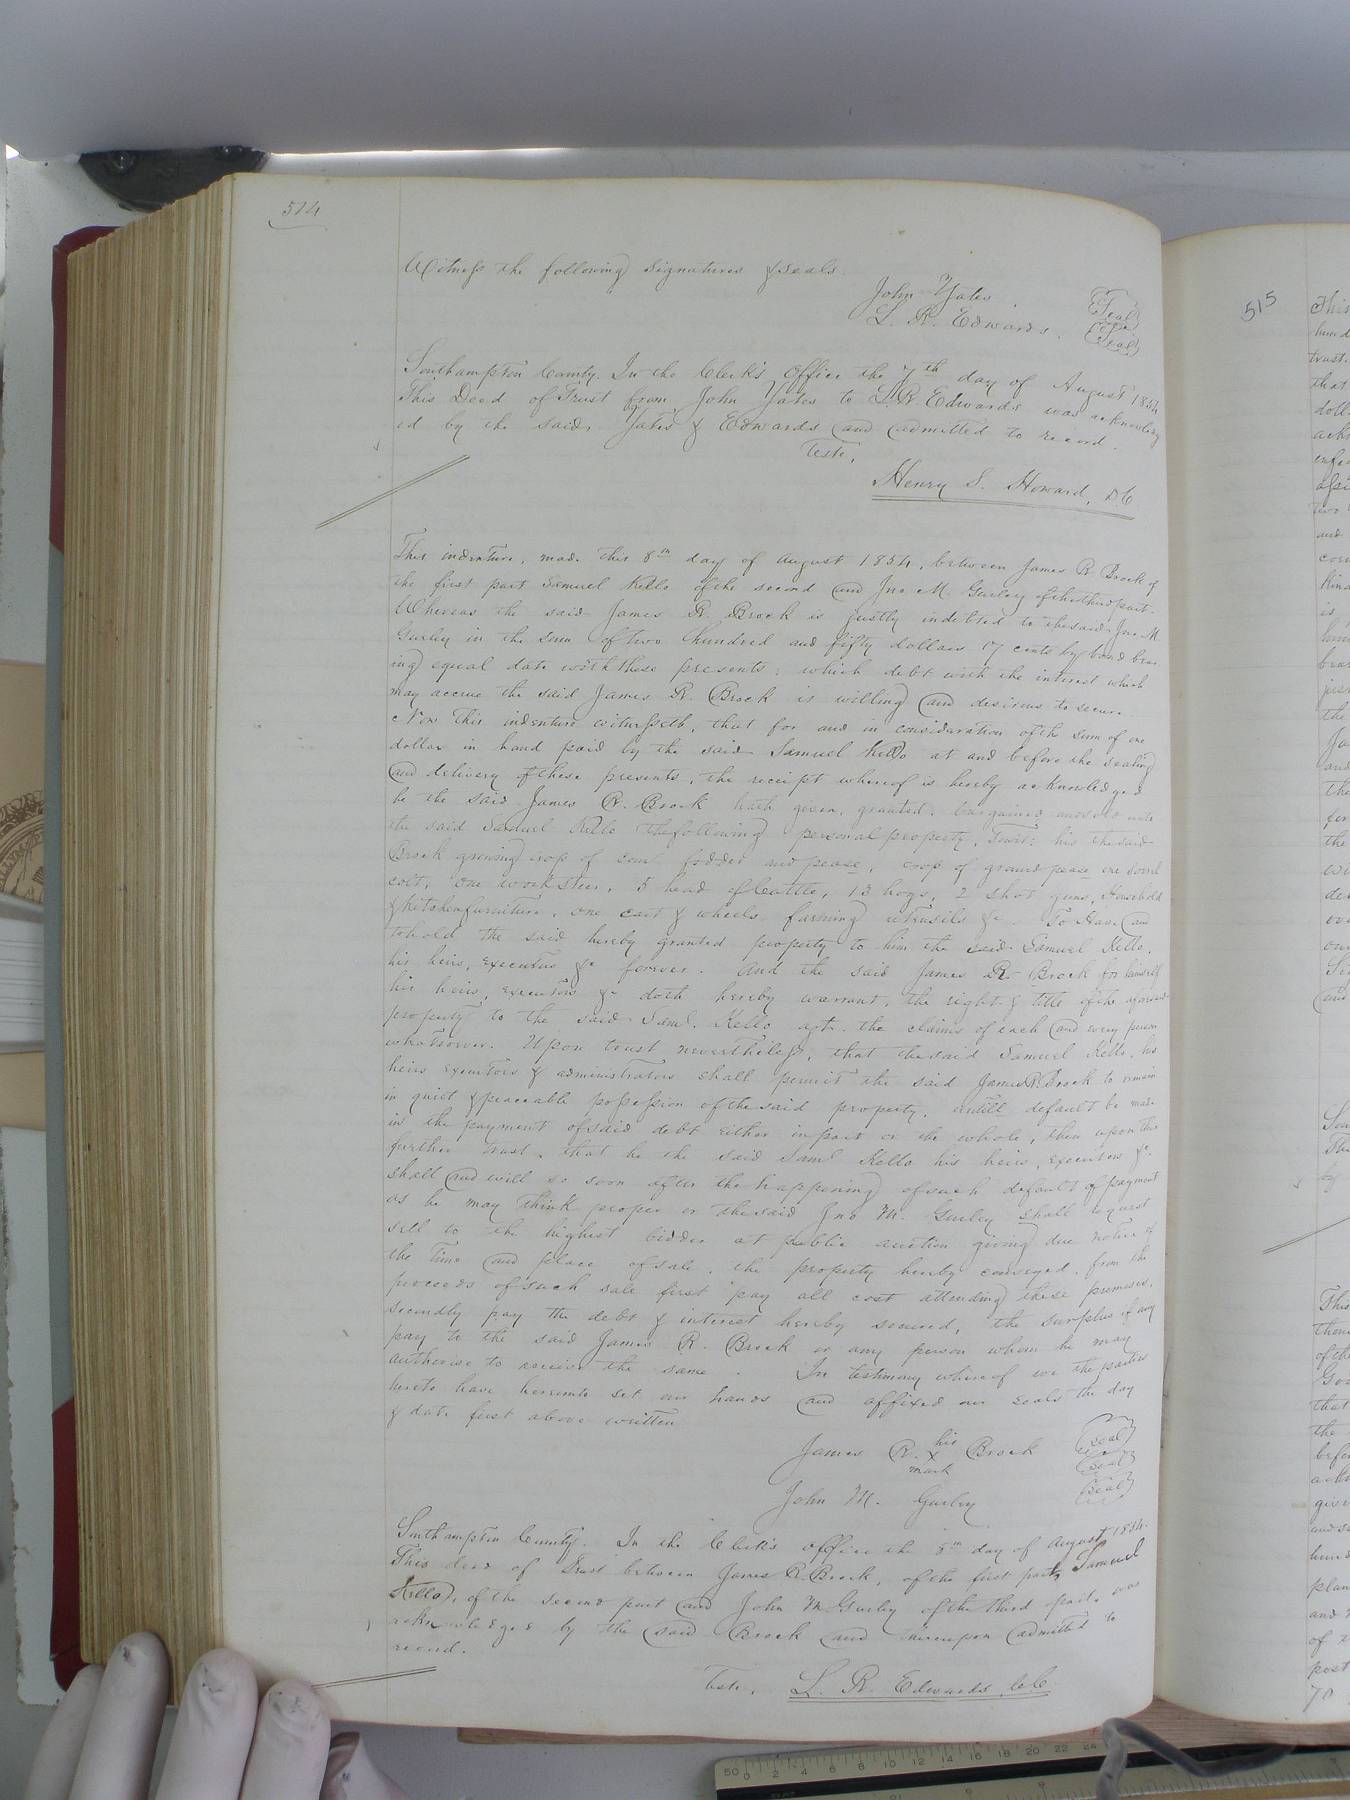 514
Witness the following signatures & seals
John Yates (Seal)
L. R. Edwards. (Seal)
Southampton County. In the Clerk's Office the 7th day of August 1854
This Deed of Trust from John Yates to L. R. Edwards was acknowledg
ed by the said Yates & Edwards and admitted to record.
Teste,
Henry S. Howard, D.C.
This indenture, made this 8th day of August 1854, between James R. Brock of
the first part Samuel Kello of the second and Jno M. Gurley of the third part.
Whereas the said James R. Brock is justly indebted to the said Jno M
Gurley in the sum of two hundred and fifty dollars 17 cents by bond bear
ing equal date with these presents; which debt with the interest which
may accrue the said James R. Brock is willing and desirous to secure.
Now This indenture witnesseth, that for and in consideration of the sum of one
dollar in hand paid by the said Samuel Kello at and before the sealing
and delivery of these presents, the receipt whereof is hereby acknowledged
he the said James R. Brock hath given, granted, bargained and sold unto
the said Samuel Kello the following personal property, Towit: his the said
Brock growing crop of corn fodder and pease, crop of ground pease one sorrel
colt, one work steer, 5 head of Cattle, 13 hogs, 2 shot guns, Household
& kitchen furniture, one cart & wheels farming utensils &c. To Have and
to hold the said hereby granted property to him the said Samuel Kello.
his heirs, executors &c forever. And the said James R. Brock for himself
his heirs, executors &c doth hereby warrant, the right & title of the aforesaid
property to the said Saml. Kello agt. the claims of each and every person
whatsoever. Upon trust nevertheless, that the said Samuel Kello, his
heirs executors & administrators shall permit the said James R. Brock to remain
in quiet & peaceable possession of the said property, untill default be made
in the payment of said debt either in part or the whole, then upon this
further trust, that he the said Saml Kello his heirs, executors &c.
shall and will so soon after the happening of such default of payment
as he may think proper or the said Jno M. Gurley shall request
sell to the highest bidder at public auction giving due notice of
the time and place of sale, the property hereby conveyed. from the
proceeds of such sale first pay all cost attending these premises,
secondly pay the debt & interest hereby secured, the surplus if any
pay to the said James R. Brock or any person whom he may
authorise to receive the same. In testimony whereof we the parties
hereto have hereunto set our hands and affixed our seals the day
& date first above written
James R. his x mark Brock (seal)
(seal)
John M. Gurley (seal)
Southampton County. In the Clerk's office the 8th day of August 1854.
This deed of Trust between James R. Brock, of the first part, Samuel
Kello, of the second part and John M Gurley of the third part. was
acknowledged by the said Brock and thereupon admitted to
record.
Teste, L. R. Edwards, C.C.
515